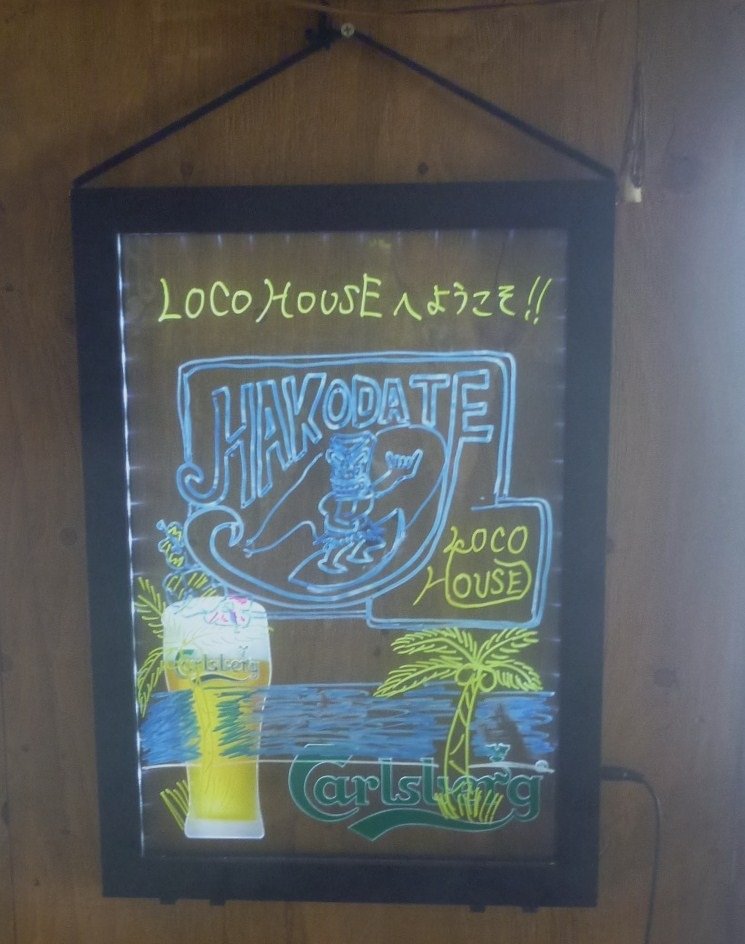 LOCO HOUSE へようこそ!!
HAKODATE
LOCO
HOUSE
Carlsberg
Carlsberg